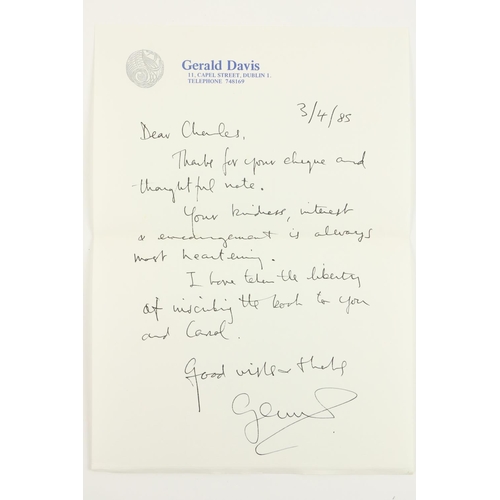 Gerald Davis
11, CAPEL STREET, DUBLIN 1.
TELEPHONE 748169
3/4/85
Dear Charles,
Thanks for your cheque and
thoughtful note.
Your kindness, interest
& encouragement is always
most heartening.
I have taken the liberty
of inscribing the book to you
and Carol.
Good wishes & thanks
Gerald